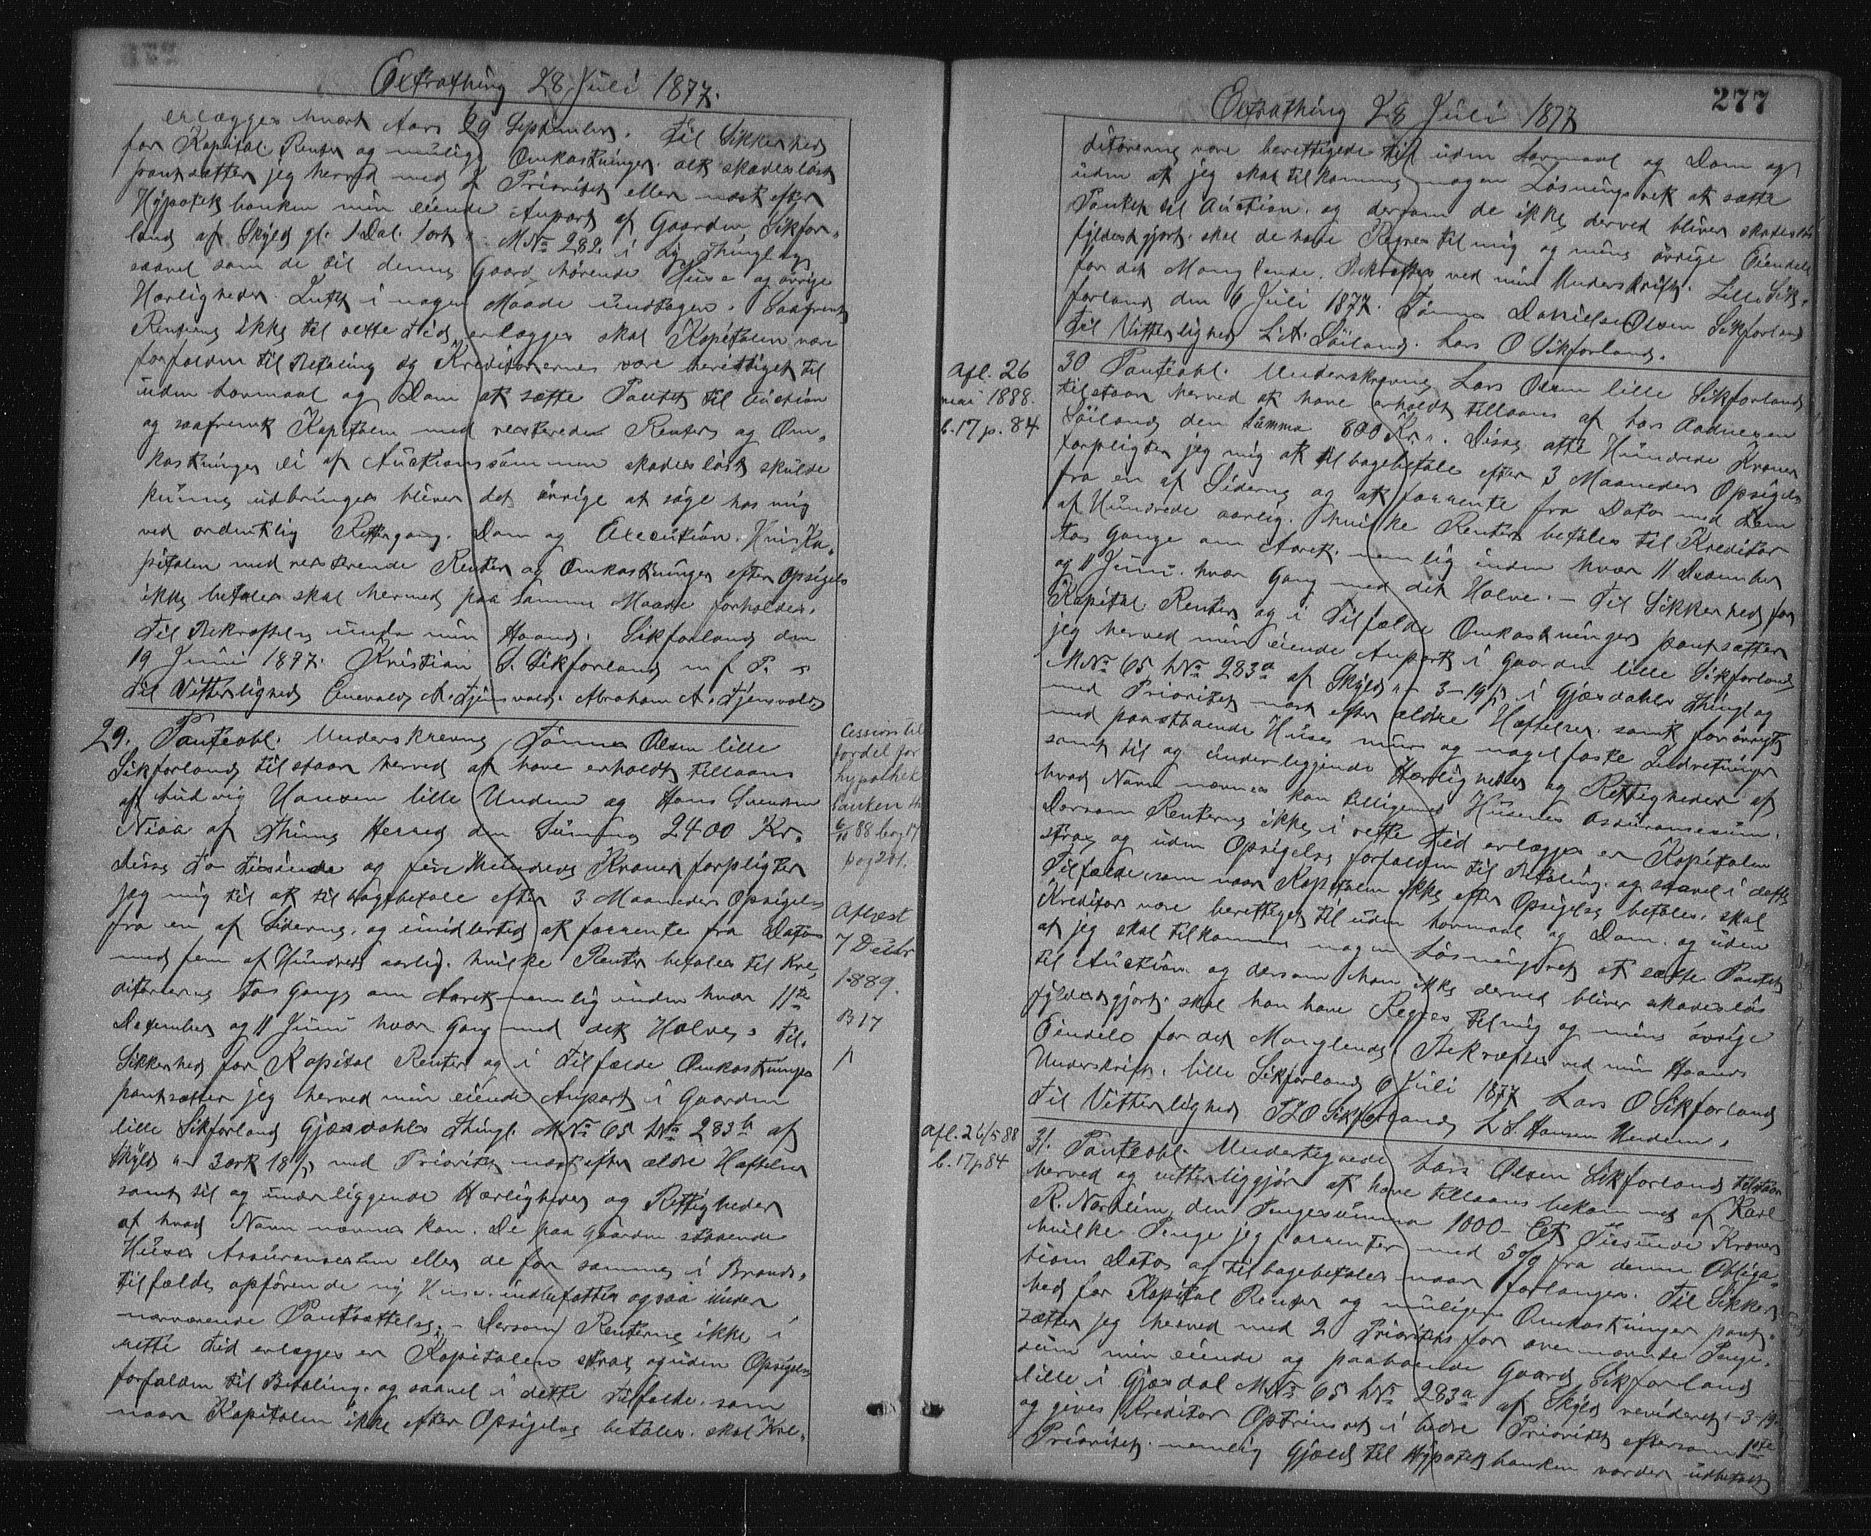 Extrathing 28 Juli 1877.
erlægges hvert Aars 29 September. Til Sikkerhed
for Kapital Renter og mulige Omkostninger alt skadesløst
pantsætter jeg herved med 2 Prioritet eller næst efter
Hypotekbanken min eiende Anpart af Gaarden Sikfor-
land af Skyld gl. 1 Dal. 1 ort MNo 282 i Thinglag
saavel som de til denne Gaard hørende Huse og øvrige
Herligheder Intet i nogen Maade undtagen. Saafremt
Renterne ikke til rette Tid erlægges skal Kapitalen være
forfalden til Betaling og Kreditorerne være berettiget til
uden Lovmaal og Dom at sætte Pantet til Auction
og saafremt Kapitalen med resterende Renter og Om-
kostninger ei af Auctionssummen skadesløst skulde
kunne udbringes bliver det øvrige at søge hos mig
ved ordentlig Rettergang, Dom og Execution. Hvis Ka-
pitalen med resterende Renter og Omkostninger efter Opsigelse
ikke betales skal hermed paa samme Maade forholdes.
Til Bekræftelse under min Haand. Sikforland den
19 Juni 1877. Kristian S. Sikforland m f P.
Til Vitterlighed Enevald A. Fjermsvold. Abraham A. Fjermsvold
29. Panteobl. Underskrevne Tønnes Olsen lille
Sikforland tilstaar herved at have erholdt tillaans
af Ludvig Hansen lille Undem og Hans Svendsen
Nioa af Thime Herred den Summa 2400 Kr.
Disse to tusinde og fire Hundrede Kroner forpligter
jeg mig til at tilbagebetale efter 3 Maaneders Opsigelse
fra en af Siderne, og imidlertid at forrente fra Dato
med fem af Hundrede aarlig. hvilke Renter betales til Kre-
ditorerne to Gange om Aaret nemlig inden hver 11te
December og 11 Juni hver Gang med det Halve. Til
Sikkerhed for Kapital Renter og i Tilfælde Omkostninger
pantsætter jeg herved min eiende Anpart i Gaarden
lille Sikforland Gjæsdahls Thingl. MNo 65 LNo 283b af
Skyld " 3 ort 18 β med Prioritet næst efter ældre Hæftelser
samt til og underliggende Herligheder og Rettigheder
af hvad Navn nævnes kan. De paa Gaarden staaende
Huses Assuransesum eller de for samme i Brand-
tilfælde opførende ny Huse indbefattes ogsaa under
nærværende Pantsættelse. – Dersom Renterne ikke i
rette Tid erlægges er Kapitalen strax og uden Opsigelse
forfalden til Betaling, og saavel i dette Tilfælde som
naar Kapitalen ikke efter Opsigelse betales, skal Kre-
Cession til
fordel for
hypothek
banken
6/10 88 bog 17
pag 201.
Aflæst
7 Decbr
1889.
B 17
p
277
Extrathing 28 Juli 1877
ditorerne være berettigede til uden Lovmaal og Dom og
uden at jeg skal tilkomme nogen Løsningsret at sætte
Pantet til Auction, og dersom de ikke derved bliver skadesløs
fyldestgjort, skal de have Regres til mig og mine øvrige Eiendele
for det Manglende. Bekræftes ved min Underskrift. Lille Sik-
forland den 6 Juli 1877. Tønnes Danielse Olsen Sikforland
Til Vitterlighed L. A. Søiland. Lars O Sikforland.
Afl. 26
mai 1888.
b. 17 p. 84
30 Panteobl. Underskrevne Lars Olsen lille Sikforland
tilstaar herved at have erholdt tillaans af Lars Aadnesen
Søiland den Summa 800 Kr. Disse otte Hundrede Kroner
forpligter jeg mig at tilbagebetale efter 3 Maaneders Opsigelse
fra en af Siderne og at forrente fra Dato med fem
af Hundrede aarlig, hvilke Renter betales til Kreditor
to Gange om Aaret, nemlig inden hver 11 December
og 11 Juni hver Gang med det Halve. – Til Sikkerhed for
Kapital Renter og i Tilfælde Omkostninger pantsætter
jeg herved min eiende Anpart i Gaarden lille Sikforland
MNo 65 LNo 283a af Skyld " – 3 – 19 β i Gjæsdahls Thinglag
med Prioritet næst efter ældre Hæftelser samt forøvrigt
med paastaaende Huse mur og nagelfaste Indretninger
samt til og underliggende Herligheder og Rettigheder af
hvad Navn nævnes kan tilligemed Husenes Assuransesum.
Dersom Renterne ikke i rette Tid erlægges er Kapitalen
strax og uden Opsigelse forfalden til Betaling, og saavel i dette
Tilfælde, som naar Kapitalen ikke efter Opsigelse betales, skal
Kreditor være berettiget til uden Lovmaal og Dom og uden
at jeg skal tilkomme nogen Løsningsret at sætte Pantet
til Auction og dersom han ikke derved bliver skadesløs
fyldestgjort, skal han have Regres til mig og mine øvrige
Eiendele for det Manglende. Bekræftes ved min Haands
Underskrift. lille Sikforland 6 Juli 1877 Lars O Sikforland
Til Vitterlighed T D O Sikforland L S. Hansen Undem.
Afl. 26/5 88
b. 17 p 84
31. Panteobl. Undertegnede Lars Olsen Sikforland tilstaar
herved og vitterliggjør at have tillaans bekommet af Karl
R. Nordeim den Pengesumma 1000 – Et Tusinde Kroner
hvilke Penge jeg forrenter med 5 % fra denne Obliga-
tions Dato og tilbagebetaler naar forlanges. Til Sikker-
hed for Kapital Renter og mulige Omkostninger pant-
sætter jeg herved med 2 Prioritet for ovennævnte Penge-
sum min eiende og paaboende Gaard Sikforland
lille i Gjæsdal MNo 65 LNo 283a af Skyld revideret " – 3 – 19.
og gives Kreditor Optrinsret i bedre Prioritet eftersom 1ste
Prioritet nemlig Gjæld til Hypotekbanken vorder udbetalt